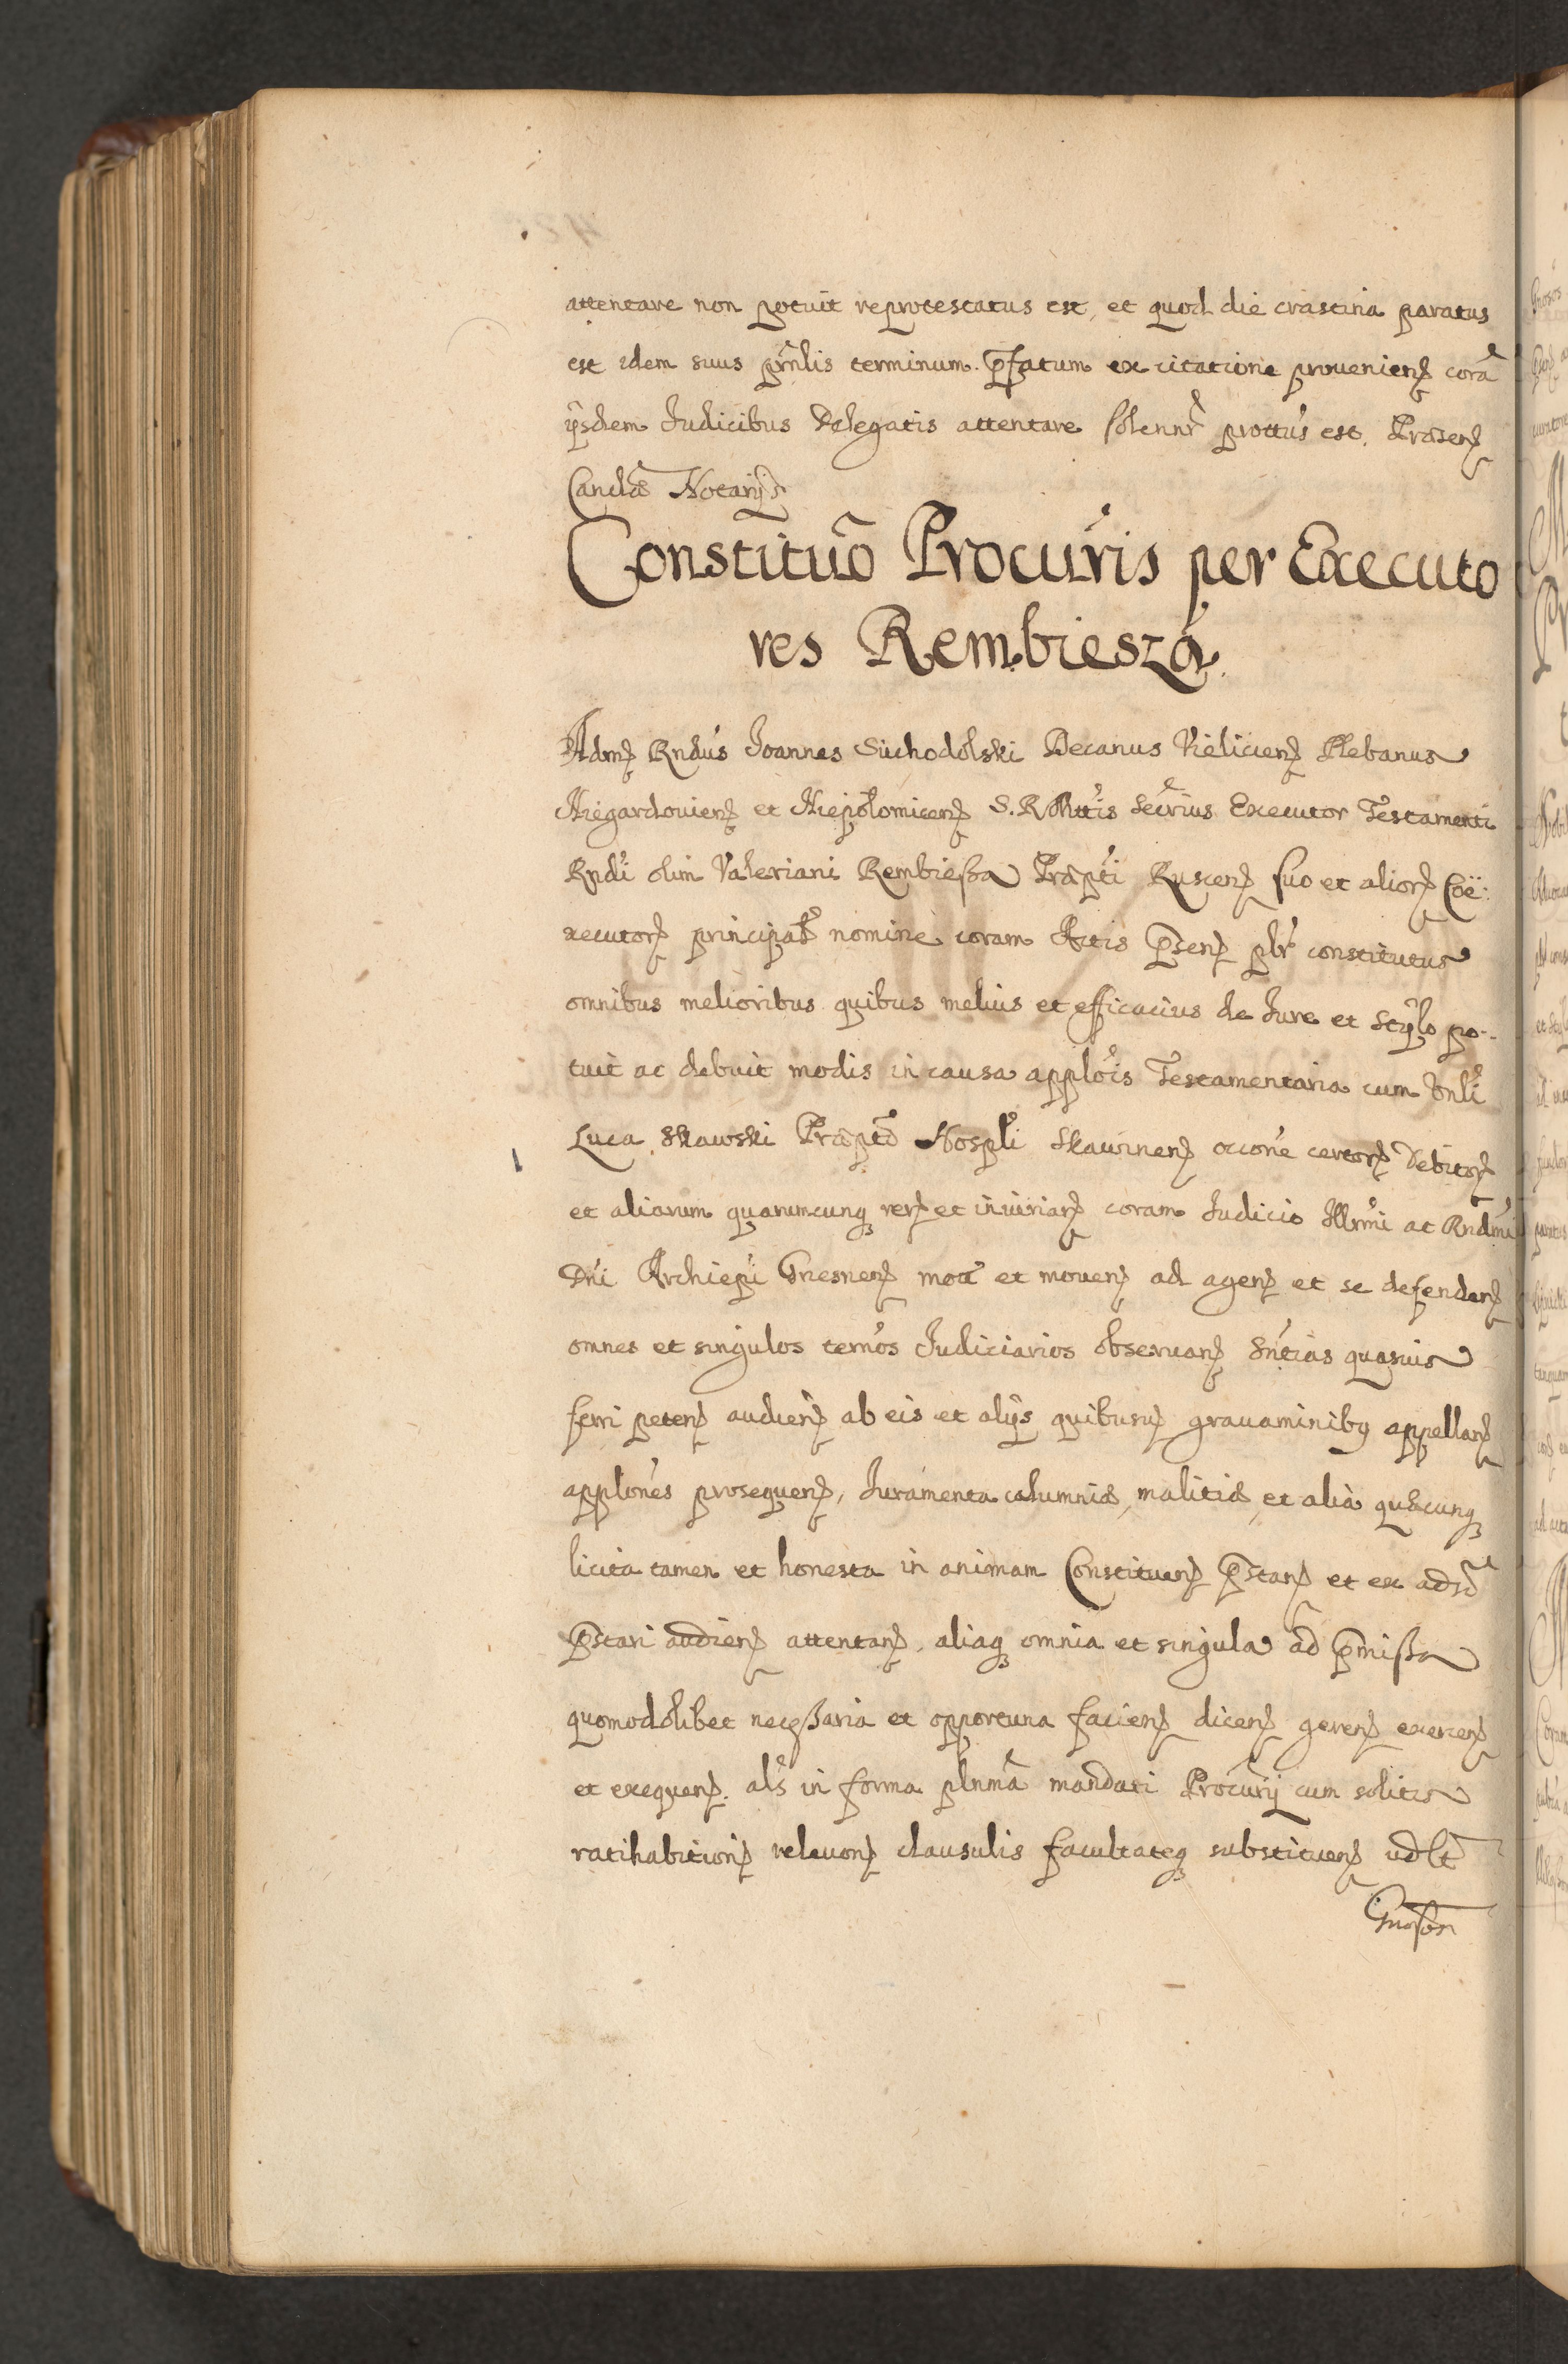 attentare non potuit reprotestatus est, et quod die crastina paratus
est idem suus prn̄lis terminum p̄fatum ex citatione prouenienꝫ corā
ijsdem Judicibus Delegatis attentare solennr̄ prottūs est. Præsenꝫ
Candæ Notarijs
Constitūo Procurris per Executo
res Rembiesza
Admꝫ Rndūs Joannes Suchodolski Decanus Vielicienꝫ Plebanus
Niegardouienꝫ et Niepolomicenꝫ S. R. Mttis Secrius Executor Testamenti
Rndi olim Valeriani Rembießa Præpti Ruscenꝫ suo et aliorꝫ Coë:
xecutorꝫ principal nomine coram Actis p̄senꝫ plr̄ constitutus
omnibus melioribus quibus melius et efficacius de Jure et Stylo po-
tuit ac debuit modis in causa applōis Testamentaria cum Vnli
Luca Skawski Præpto Hospli Skawinenꝫ occone certorꝫ Debitorꝫ
et aliarum quarumcunqꝫ rerꝫ et iniuriarꝫ coram Judicio Illrmi ac Rndmi
Dni Archiepi Gnesnenꝫ mota et mouenꝫ ad agenꝫ et se defendenꝫ
omnes et singulos ternos Judiciarios obseruanꝫ Sntias quasuis
ferri petenꝫ audienꝫ ab eis et alijs quibusuꝫ grauaminibꝫ appellanꝫ
applones prosequenꝫ, Juramenta calumniæ, malitiæ, et alia quæcunqꝫ
licita tamen et honesta in animam Constituenꝫ p̄stanꝫ et ex adso
p̄stari audienꝫ attentanꝫ, aliaqꝫ omnia et singula ad p̄mißa
quomodolibet neceßaria et opportuna facienꝫ dicenꝫ gerenꝫ exercenꝫ
et exequenꝫ. als in forma plnmā mandati Procurij cum solitis
ratihabitionꝫ releuonꝫ clausulis facultateqꝫ substituenꝫ vdlt
Gnoson